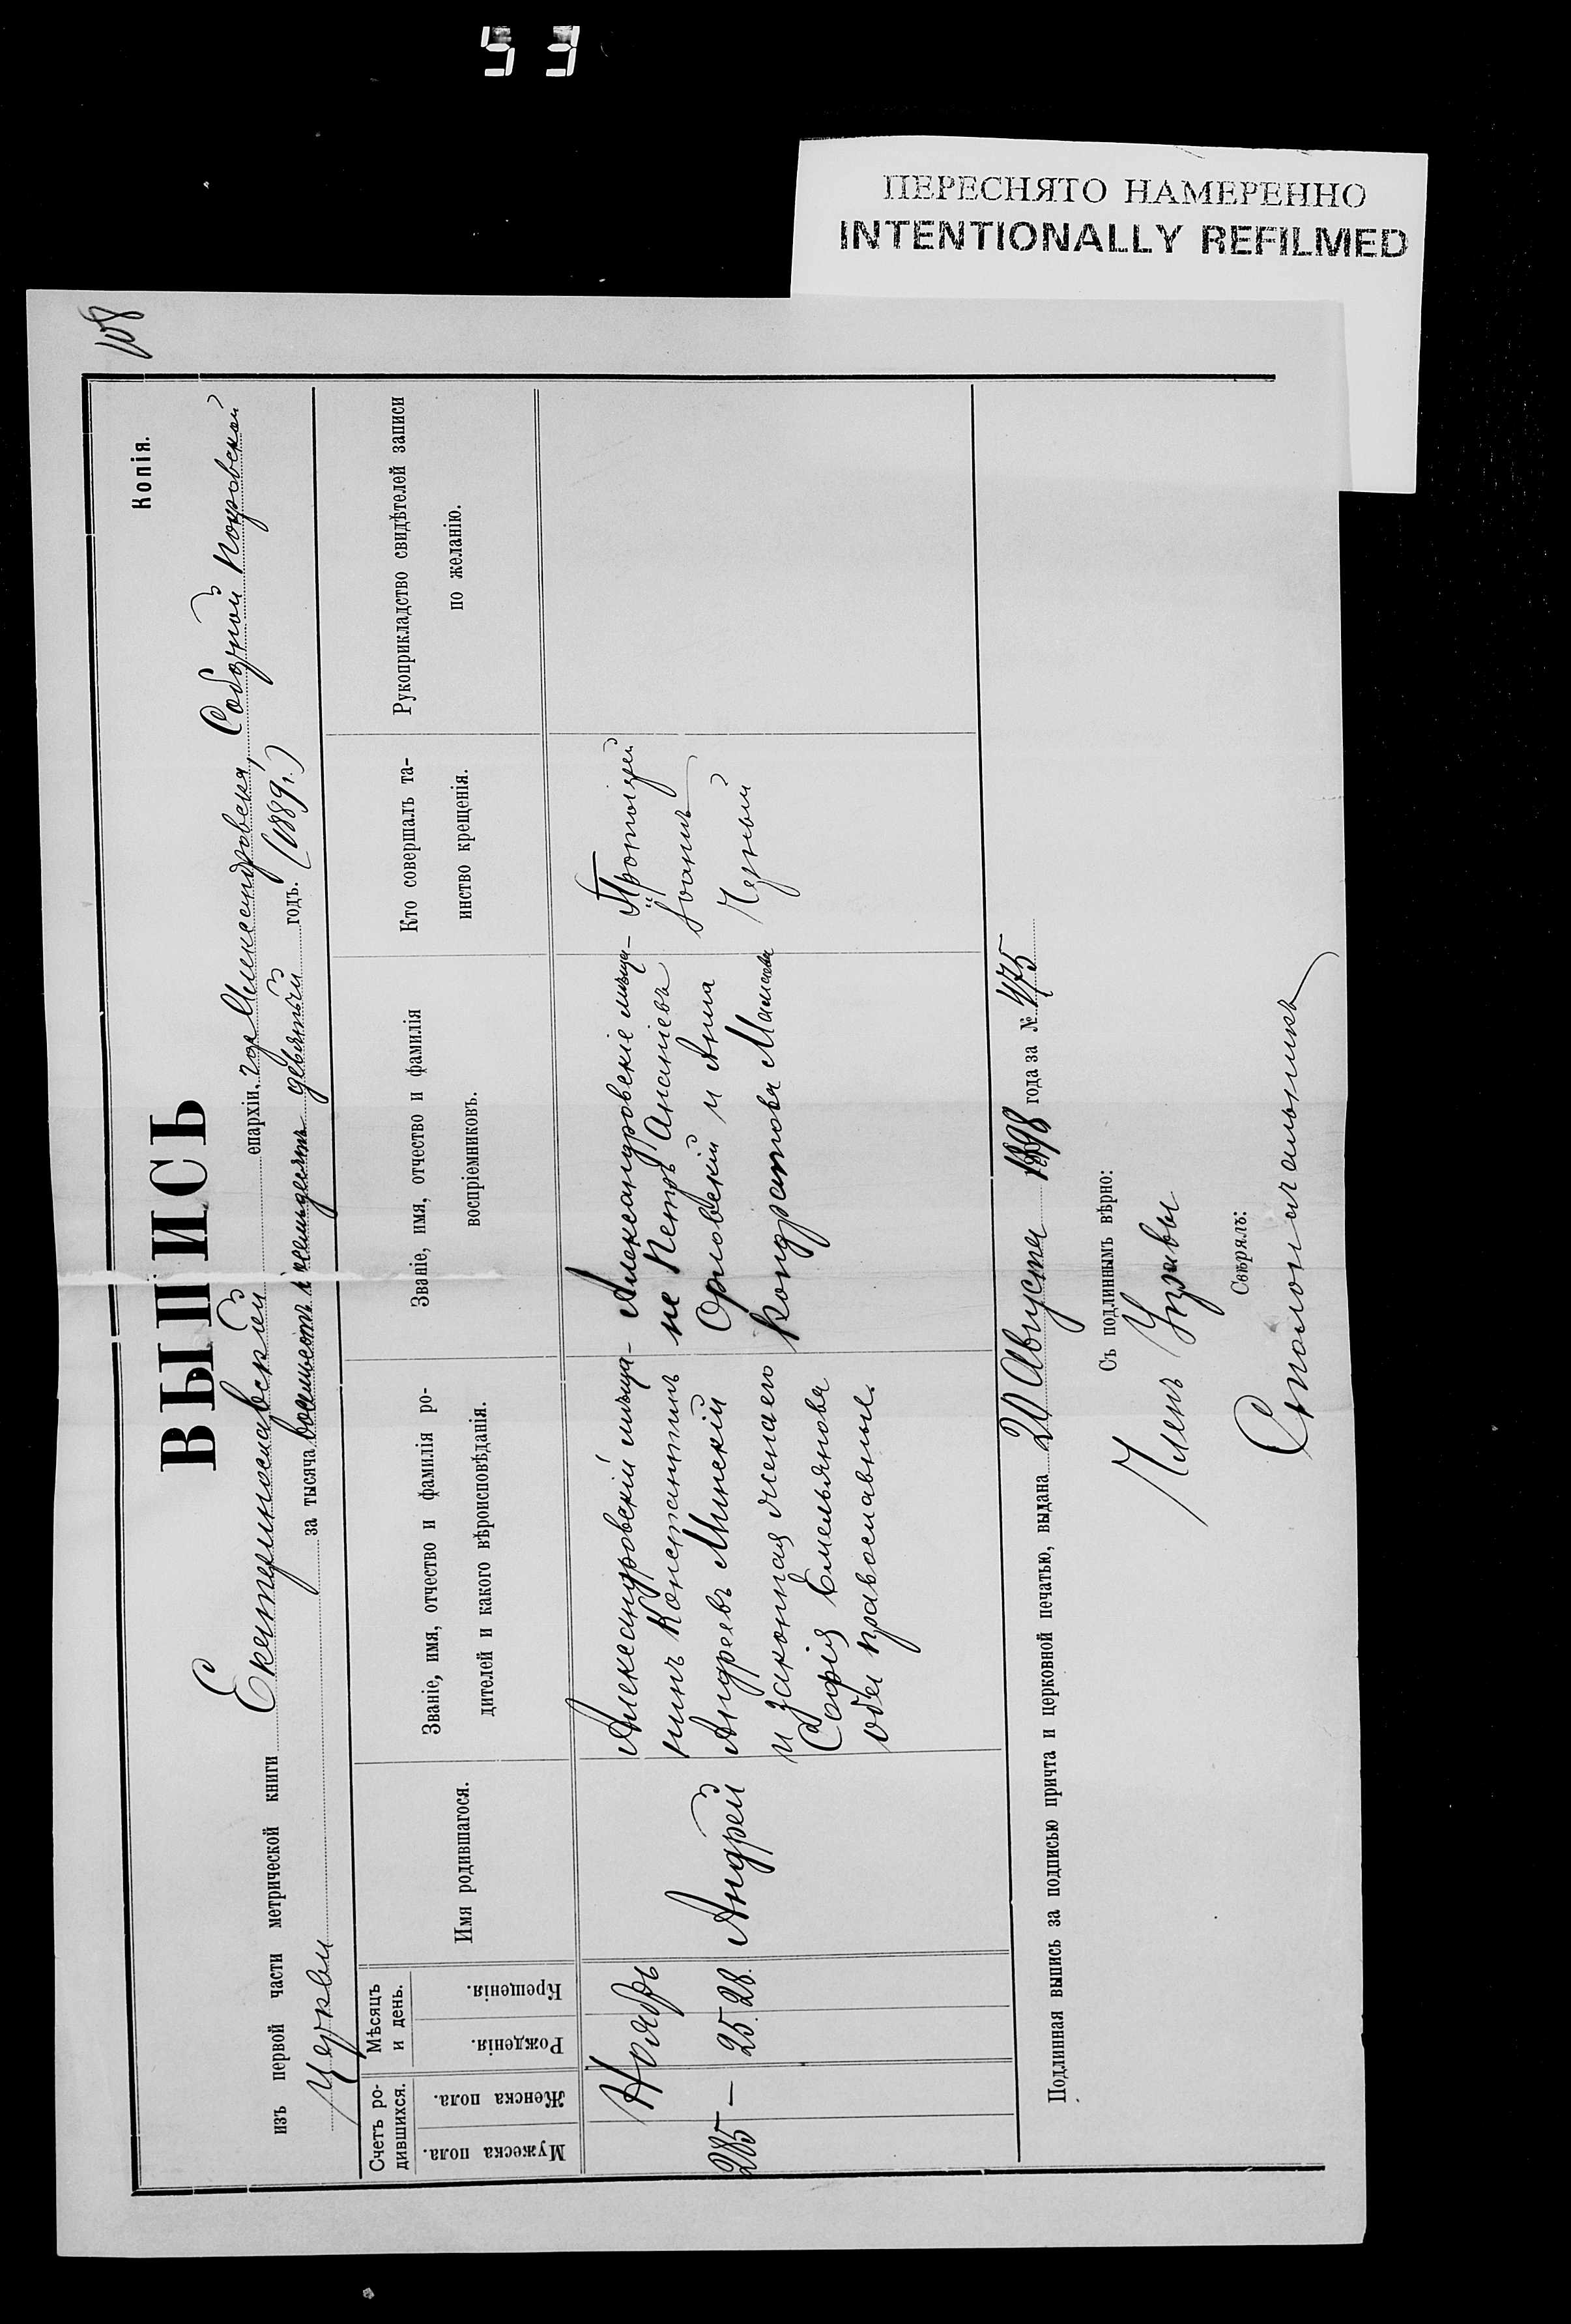 53
ПЕРЕСНЯТО НАМЕРЕННО
INTENTIONALLY REFILMED
108
Копія.
ВЫПИСЬ
изъ первой части метрической книги Екатеринославской епархіи, гор Александровска, Соборной Покровской
Церкви за тысяча восемьсотъ восемьдесятъ девятый годъ. (1889 г.)
Счетъ ро-
дившихся.
Мужеска пола.
Женска пола.
Мѣсяцъ
и день.
Рожденія.
Крещенія.
Имя родившагося.
Званіе, имя, отчество и фамилія ро-
дителей и какого вѣроисповѣданія.
Званіе, имя, отчество и фамилія
воспріемниковъ.
Кто совершалъ та-
инство крещенія.
Рукоприкладство свидѣтелей записи
по желанію.
Ноябрь
285 — 25. 28.
Андрей
Александровскій мѣща-
нинъ Константинъ
Андреевъ Минскій
и законная жена его
Софія Емельянова
оба православные.
Александровскіе мѣща-
не Петръ Ананіевъ
Орловскій и Анна
Кондратова
Протоіерей
Іоаннъ
Черный
Подлинная выпись за подписью причта и церковной печатью, выдана 20 Августа 1898 года за № 475
Съ подлиннымъ вѣрно:
Членъ Управы
Свѣрялъ:
Столоначальникъ